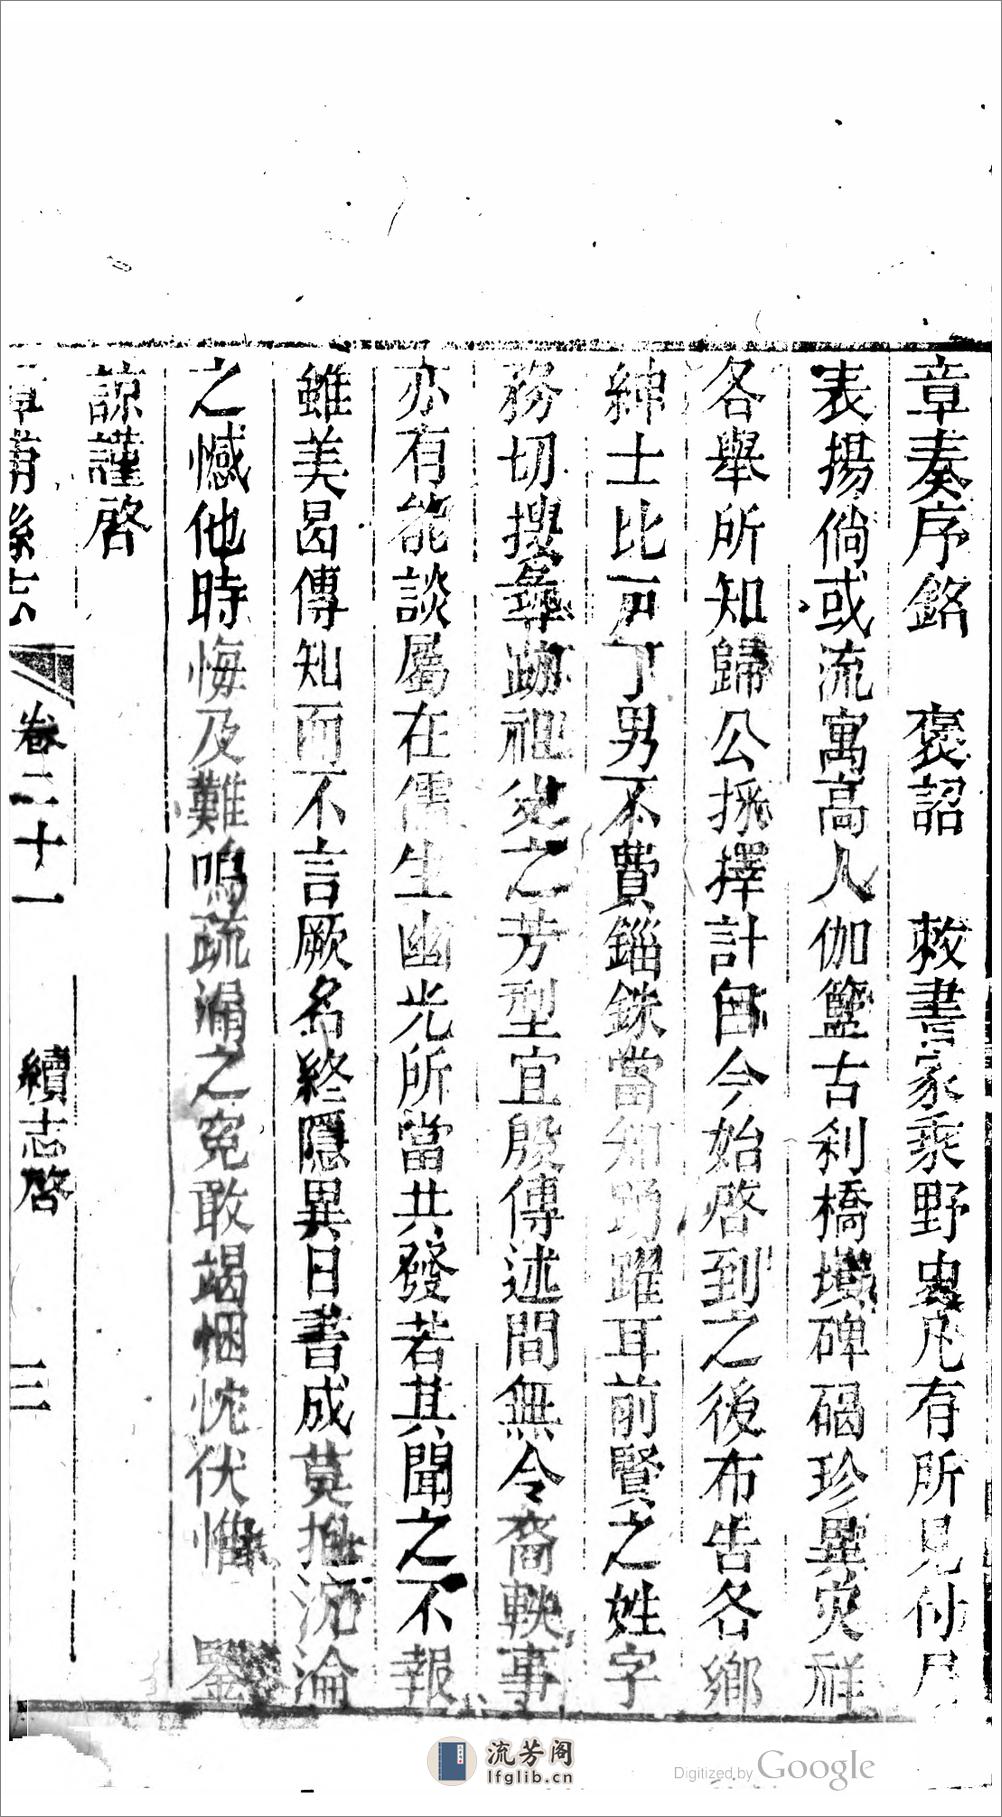 章奏序銘　褒詔　敕書家乘野史凡有所見付
表揚倘或流寓高人伽籃古刹橋墳碑碣珍異灾祥
各舉所知歸公採擇計自今始啓到之後布告各鄉
紳士比戸丁男不費錙銖當知踴躍耳前賢之姓字
務切搜彝跡祖宗之芳型宜殷傳述間無令裔軼事
亦有能談屬在儒生幽光所當共發若其聞之不報
雖美曷傳知而不言厥名終隱異日書成莫抱沉淪
之憾他時悔及難鳴疏漏之寃敢竭悃忱伏惟　鑒
諒謹啓
卷二十一　續志啓　三
流芳阁
lfglib.cn
Digitized by Google